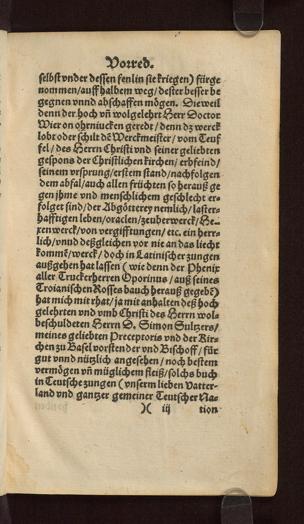 Vorred.
selbst vnder dessen fenlin sie kriegen) fürge
nommen/auff halbem weg/dester besser be
gegnen vnnd abschaffen mögen. Dieweil
denn der hoch vñ wolgelehrt Herr Doctor
Wier on ohrniucken geredt/denn dz werck
lobt oder schilt dẽ Werckmeister/vom Teuf
fel/des Herrn Christi vnd seiner geliebten
gespons der Christlichen kirchen/erbfeind/
seinem vrsprung/erstem stand/nachfolgen
dem abfal/auch allen früchten so herauß ge
gen jhme vnd menschlichem geschlecht er-
folget sind/der Abgötterey nemlich/laster-
hafftigen leben/oraclen/zeuberwerck/He-
xenwerck/von vergifftungen/etc. ein herr-
lich/vnnd deßgleichen vor nie an das liecht
kommẽ/werck/doch in Latinischer zungen
außgehen hat lassen (wie denn der Phenix
aller Truckerherren Oporinus/auß seines
Troianischen Rosses bauch herauß gegebẽ)
hat mich mit rhat/ja mit anhalten deß hoch
gelehrten vnd vmb Christi des Herrn wol-
beschuldeten Herrn D. Simon Sultzers/
meines geliebten Preceptoris vnd der Kir-
chen zu Basel vorstender vnd Bischoff/für
gut vnnd nützlich angesehen/noch bestem
vermögen vñ müglichem fleiß/solchs buch
in Teutsche zungen (vnserm lieben Vatter-
land vnd gantzer gemeiner Teutscher Na-
)( iij tion